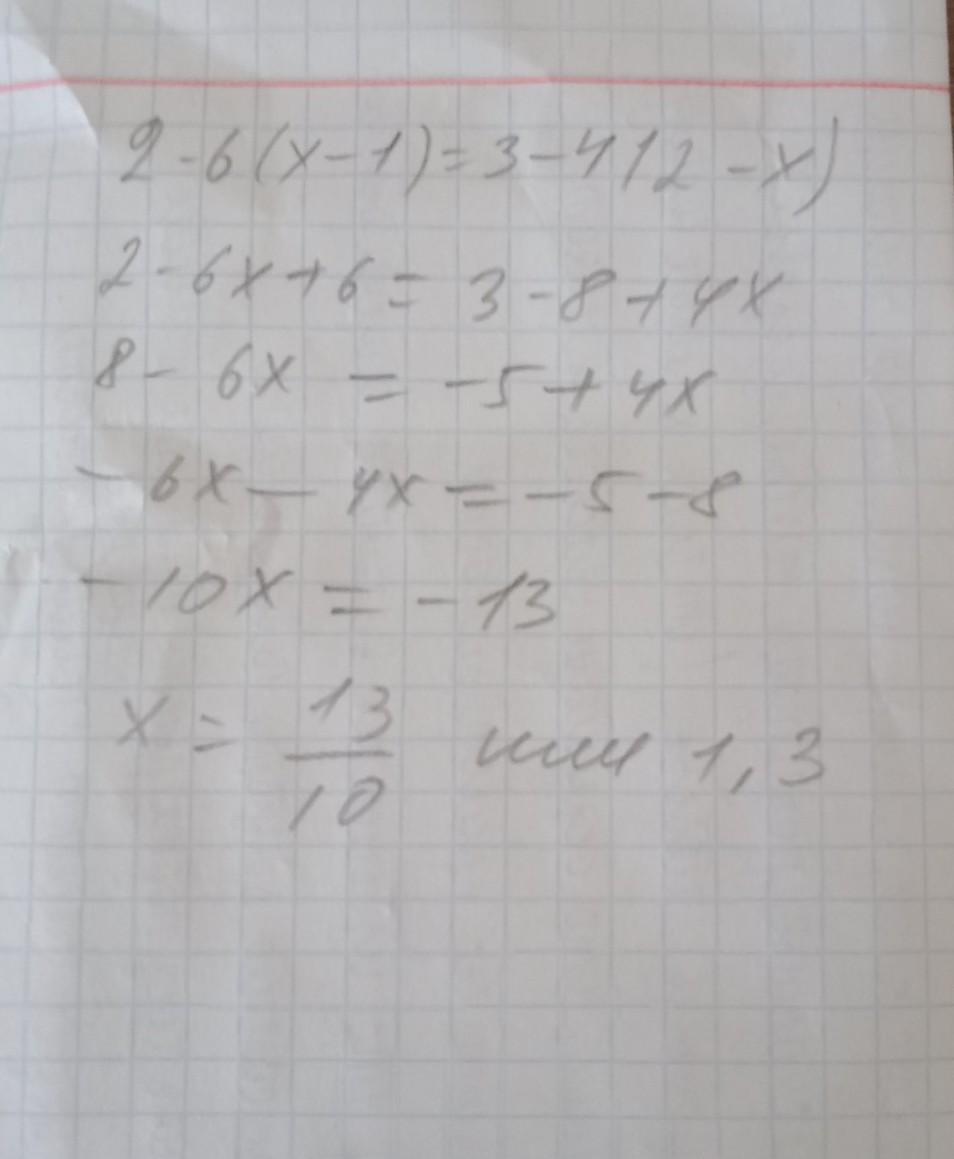 2-6(x-1)=3-4(2-x)
2-6x+6=3-8+4x
8-6x=-5+4x
-6x-4x=-5-8
-10x=-13
x=13/10 или 1,3